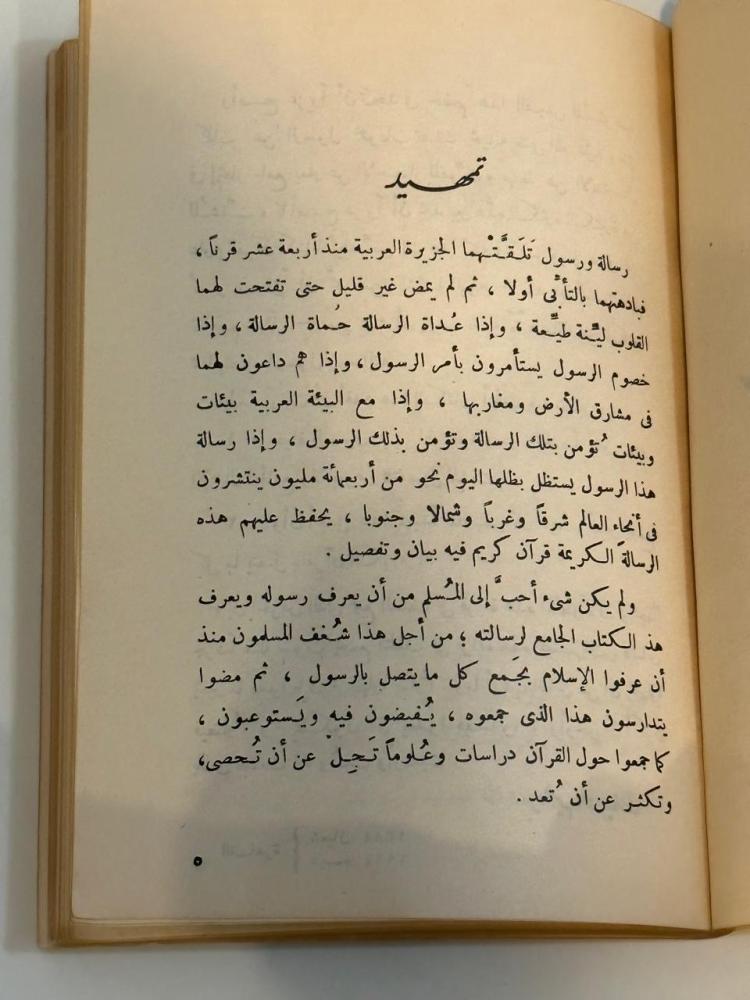 تمهيد
رسالة ورسول تَلَقَّتْهما الجزيرة العربية منذ أربعة عشر قرناً ،
فبادهتهما بالتأبّى أولا ، ثم لم يمض غير قليل حتى تفتحت لهما
القلوب ليِّنة طيِّعة ، وإذا عُداة الرسالة حُماة الرسالة ، وإذا
خصوم الرسول يستأمرون بأمر الرسول ، وإذا هم داعون لهما
فى مشارق الأرض ومغاربها ، وإذا مع البيئة العربية بيئات
وبيئات تُؤمن بتلك الرسالة وتؤمن بذلك الرسول ، وإذا رسالة
هذا الرسول يستظل بظلها اليوم نحو من أربعمائة مليون ينتشرون
فى أنحاء العالم شرقاً وغرباً وشمالا وجنوبا ، يحفظ عليهم هذه
الرسالة الكريمة قرآن كريم فيه بيان وتفصيل .
ولم يكن شىء أحبَّ إلى المُسلم من أن يعرف رسوله ويعرف
هذ الكتاب الجامع لرسالته ؛ من أجل هذا شُغف المسلمون منذ
أن عرفوا الإسلام بجَمع كل ما يتصل بالرسول ، ثم مضوا
يتدارسون هذا الذى جمعوه ، يُفيضون فيه ويَستوعبون ،
كما جمعوا حول القرآن دراسات وعُلوماً تَجِلّ عن أن تُحصى،
وتكثر عن أن تُعد .
٥